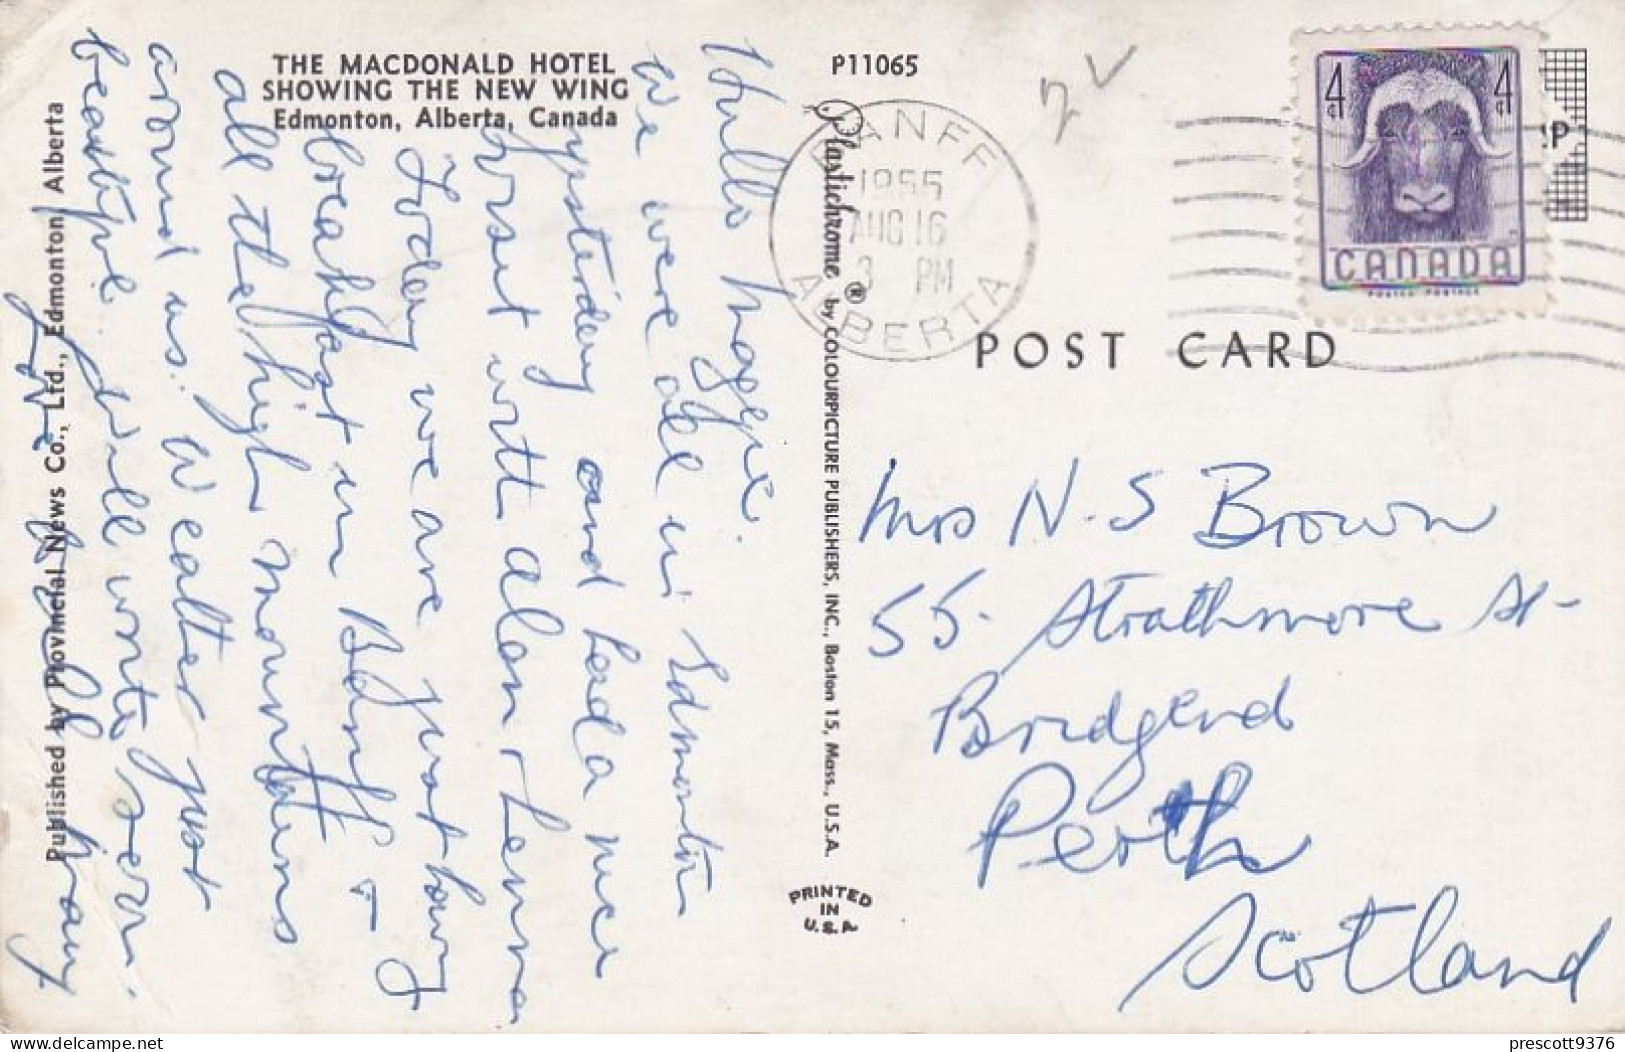 THE MACDONALD HOTEL
SHOWING THE NEW WING
Edmonton, Alberta, Canada
Published by Provincial News Co., Ltd., Edmonton Alberta
Hullo Maggie.
We were all in Edmonton
yesterday and had a nice
visit with Alan + Lenna
Today we are just having
breakfast in Banff -
all the high mountains
around us. Weather just
beautiful. Will write soon.
Love
P11065
Plastichrome ® by COLOURPICTURE PUBLISHERS, INC., Boston 15, Mass., U.S.A.
PRINTED
IN
U.S.A.
BANFF
1955
AUG 16
3 PM
ALBERTA
4¢ 4¢
CANADA
POSTES POSTAGE
POST CARD
Mrs N. S Brown
55. Strathmore St-
Bridgend
Perth
Scotland
prescott9376